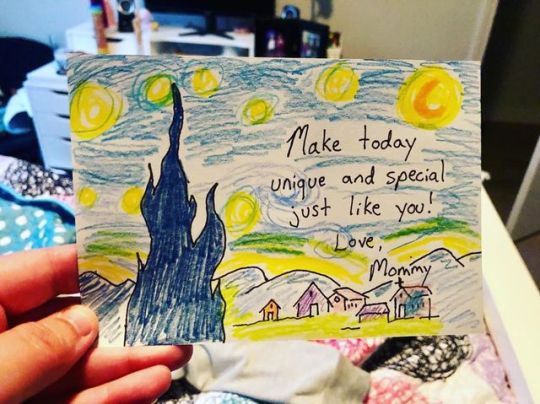 Make today
unique and special
just like you!
Love,
Mommy